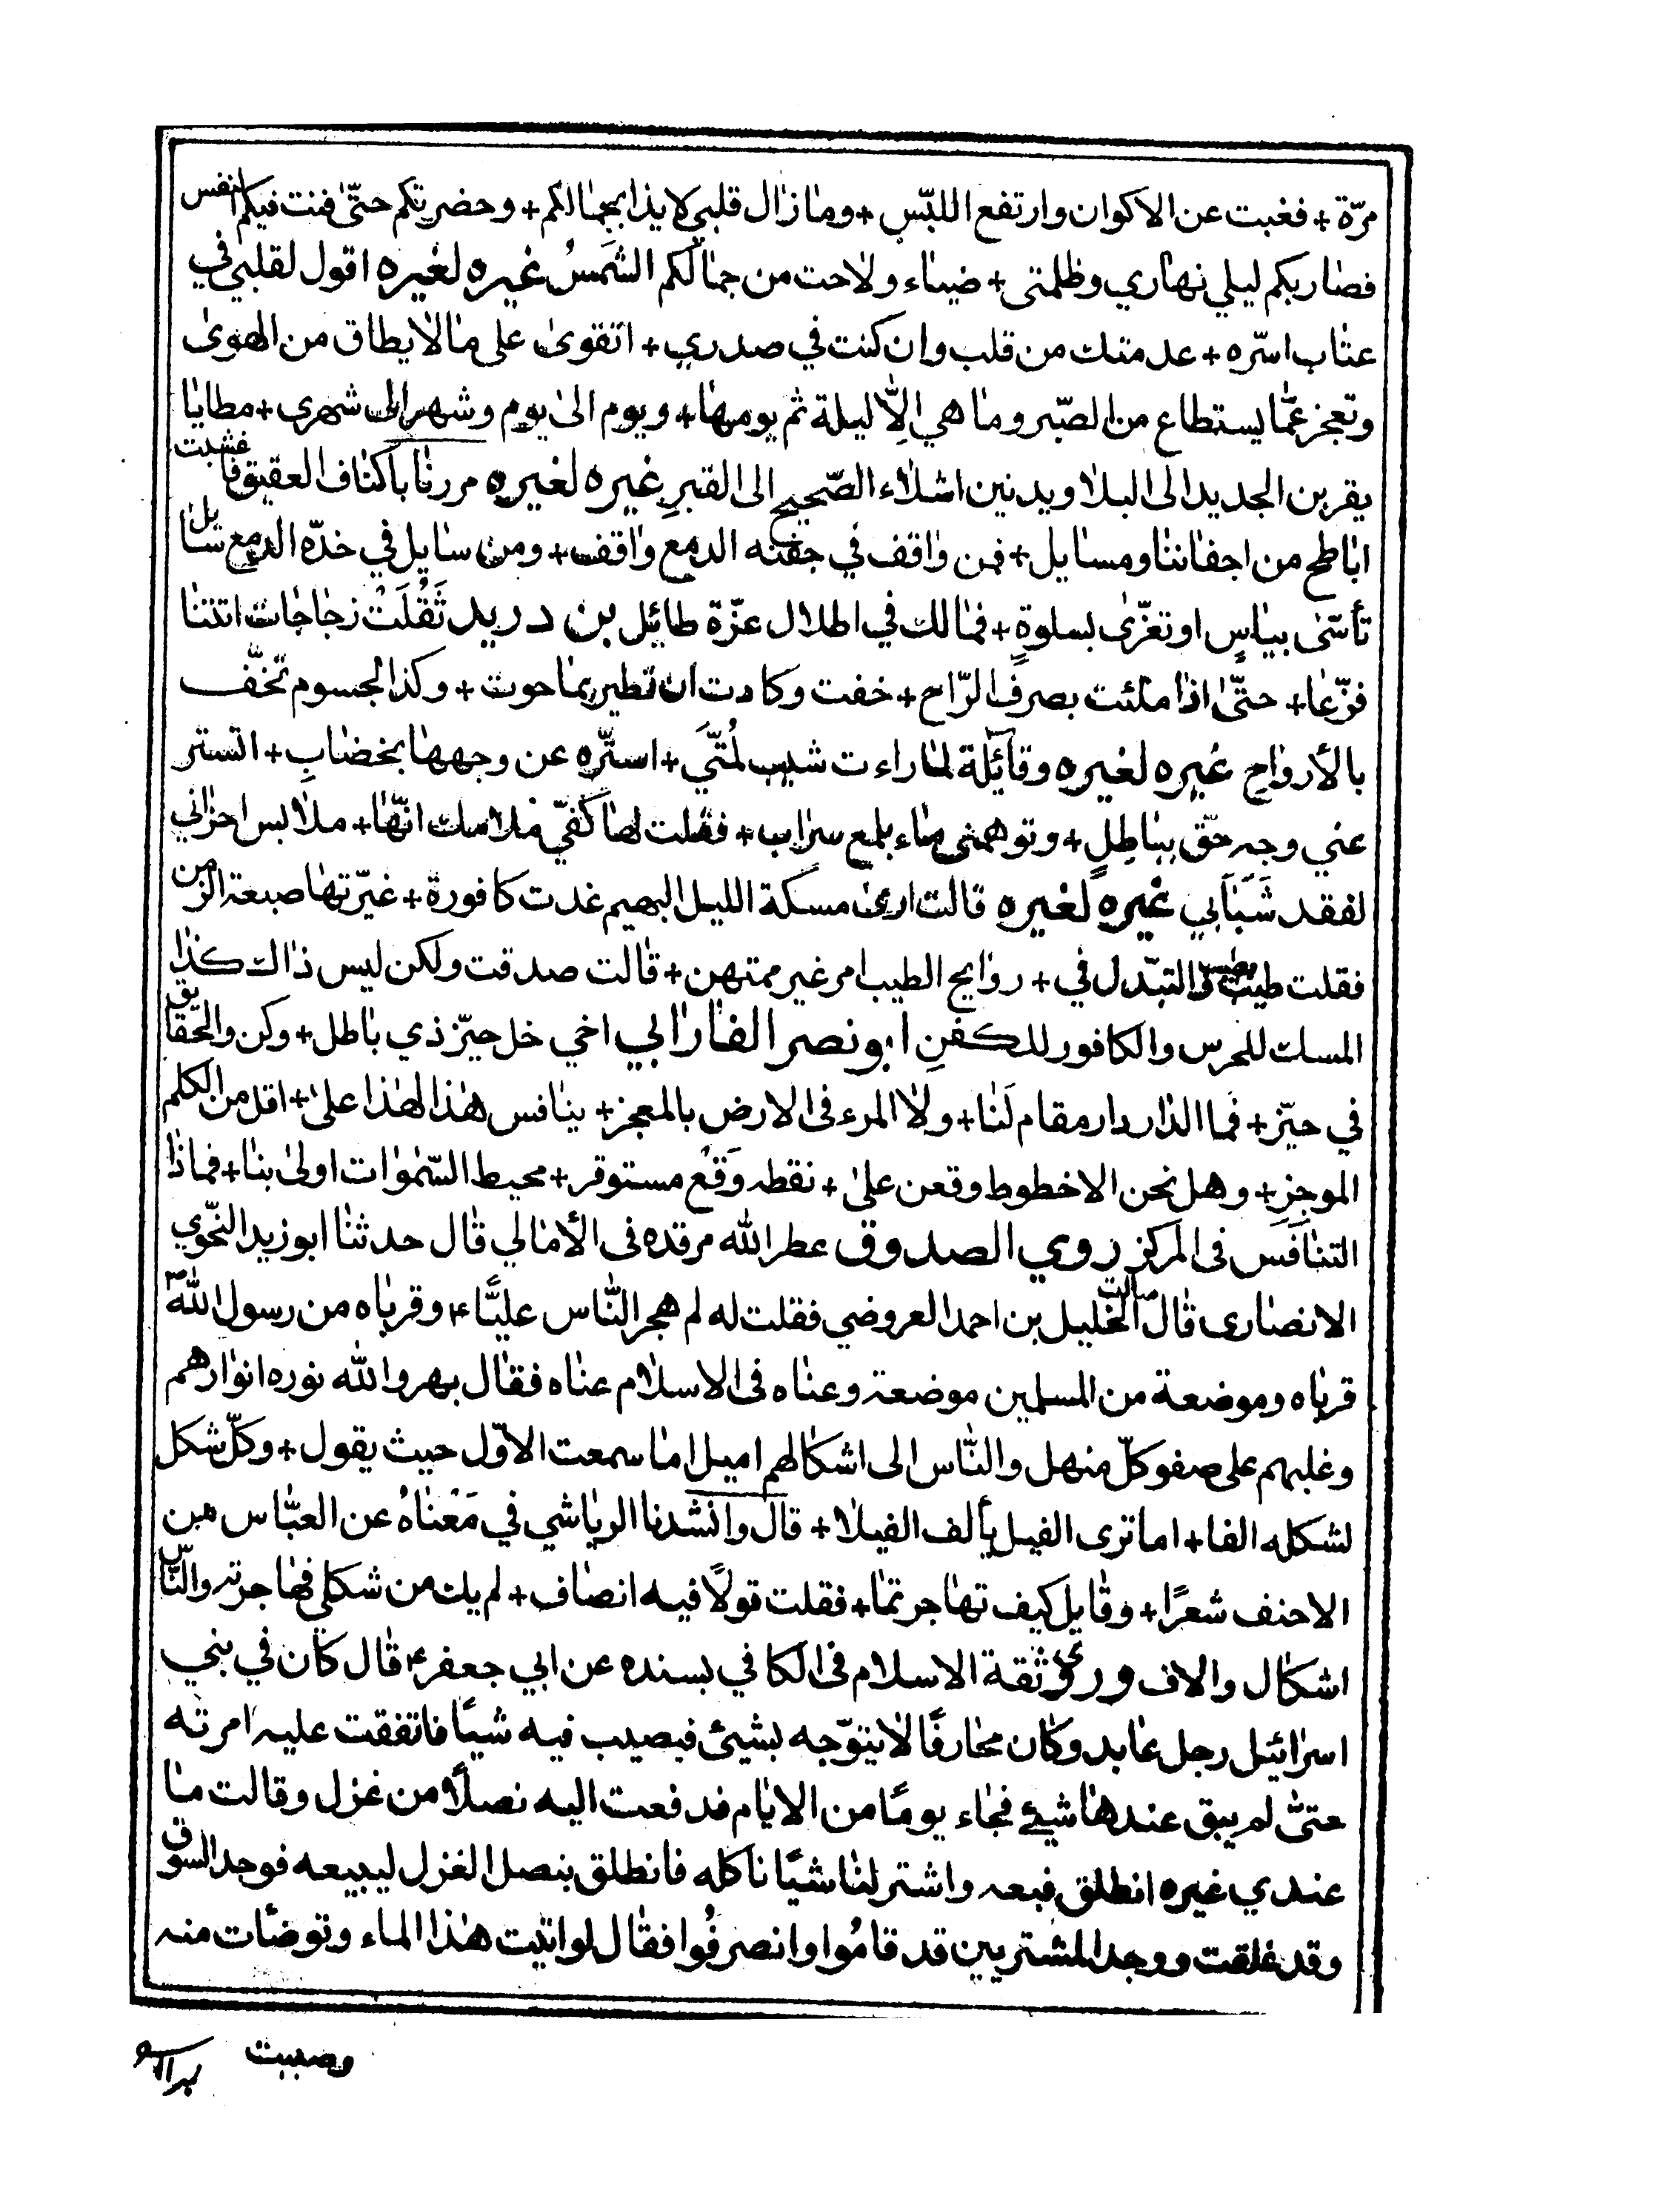 مرّة + فغبت عن الاكوان وارتفع اللبّس + وما زال قلبي لايذا بجمالكم + وحضرتكم حتّى فنت فيكم انفس
فصار بكم ليلي نهاري وظلمتى + ضياء ولاحت من جمالكم الشمسُ غيره لغيره اقول لقلبي في
عتاب اسّره + عدمتك من قلب وان كنت في صدري + اتقوى على ما لا يطاق من الهوى
وتعجز عمّا يستطاع من الصّبر وما هي الّا ليلة ثم يومها + ويوم الى يوم وشهر الى شهرى + مطايا
يقربن الجديد الى البلا ويدنين اشلاء الصّحيح الى القبرِ غيره لغيره مررنا باكناف العقيق فاعشبت
اباطح من اجفاننا ومسايل + فمن واقف في جفنه الدمع واقف + ومن سايل في خدّه الدمع سايل
تأسّى بياسٍ او تعزّى بسلوةٍ + فمالك في اطلال عزّة طائل بن دريد ثَقُلَتْ زجاجات اتتنا
فرّغا + حتّى اذا ملئت بصرف الرّاح + خفت وكادت ان تطير بما حوت + وكذا الجسوم تخفّف
بالأرواح غيره لغيره وقائلة لما راءت شيب لمُتّي + استّره عن وجهها بخضابِ + اتستر
عني وجه حقّ بباطلٍ + وتوهمنى ماء بلمع سراب + فقلت لها كفّي ملامك انّها + ملابس احزاني
لفقد شَبَابي غيره لغيره قالت ارى مسكة الليل البهيم غدت كافورة + غيّرتها صبغة الزمن
فقلت طيب بطيب والتبّدل في + روايح الطيب امر غير ممتهن + قالت صدقت ولكن ليس ذاك كذا
المسك للعرس والكافور للكفنِ ابو نصر الفارابي اخي خل حيّز ذي باطل + وكن والحقايق
في حيّز + فما الدار دار مقام لَنا + ولا المرء فى الارض بالمعجز + ينافس هذا لهذا على + اقل من الكلم
الموجزِ + وهل نحن الا خطوط وقعن على + نقطه وَقْع مستوفر + محيط السّموات اولى بنا + فماذا
التنافَس فى المركز روي الصدوق عطر الله مرقده فى الأمالي قال حدثنا ابو زيد النحّوي
الانصارى قال سالت الخليل بن احمد العروضي فقلت له لم هجر النّاس عليًّا ع وقرباه من رسول الله ص
قرباه وموضعة من المسلمين موضعة وعناه فى الاسلام عناه فقال بهر والله نوره انوارهم
وغلبهم على صفو كلّ منهل والنّاس الى اشكالهم اميل اما سمعت الاوّل حيث يقول + وكلّ شكل
لشكله الفا + اما ترى الفيل يألف الفيلا + قال وانشدنا الرياشي في مَعْناهُ عن العبّاس بن
الاحنف شعرًا + وقايل كيف تهاجرتما + فقلت قولًا فيه انصاف + لم يك من شكلي فهاجرته والنّاس
اشكال والاف وروى ثقة الاسلام فى الكافي بسنده عن ابي جعفر ع قال كان في بني
اسرائيل رجل عابد وكان محارفًا لا يتوّجه بشيئ فيصيب فيه شيًا فاتفقت عليه امرته
حتىّ لم يبق عندها شيئ فجاء يومًا من الايام فدفعت اليه نصلًا من غزل وقالت ما
عندي غيره انطلق فبعه واشتر لنا شيًا ناكله فانطلق بنصل الغزل ليبيعه فوجد السوق
وقد غلقت ووجد المشتريين قد قامُوا وانصرفُوا فقال لو اتيت هذا الماء وتوضات منه
وصببت